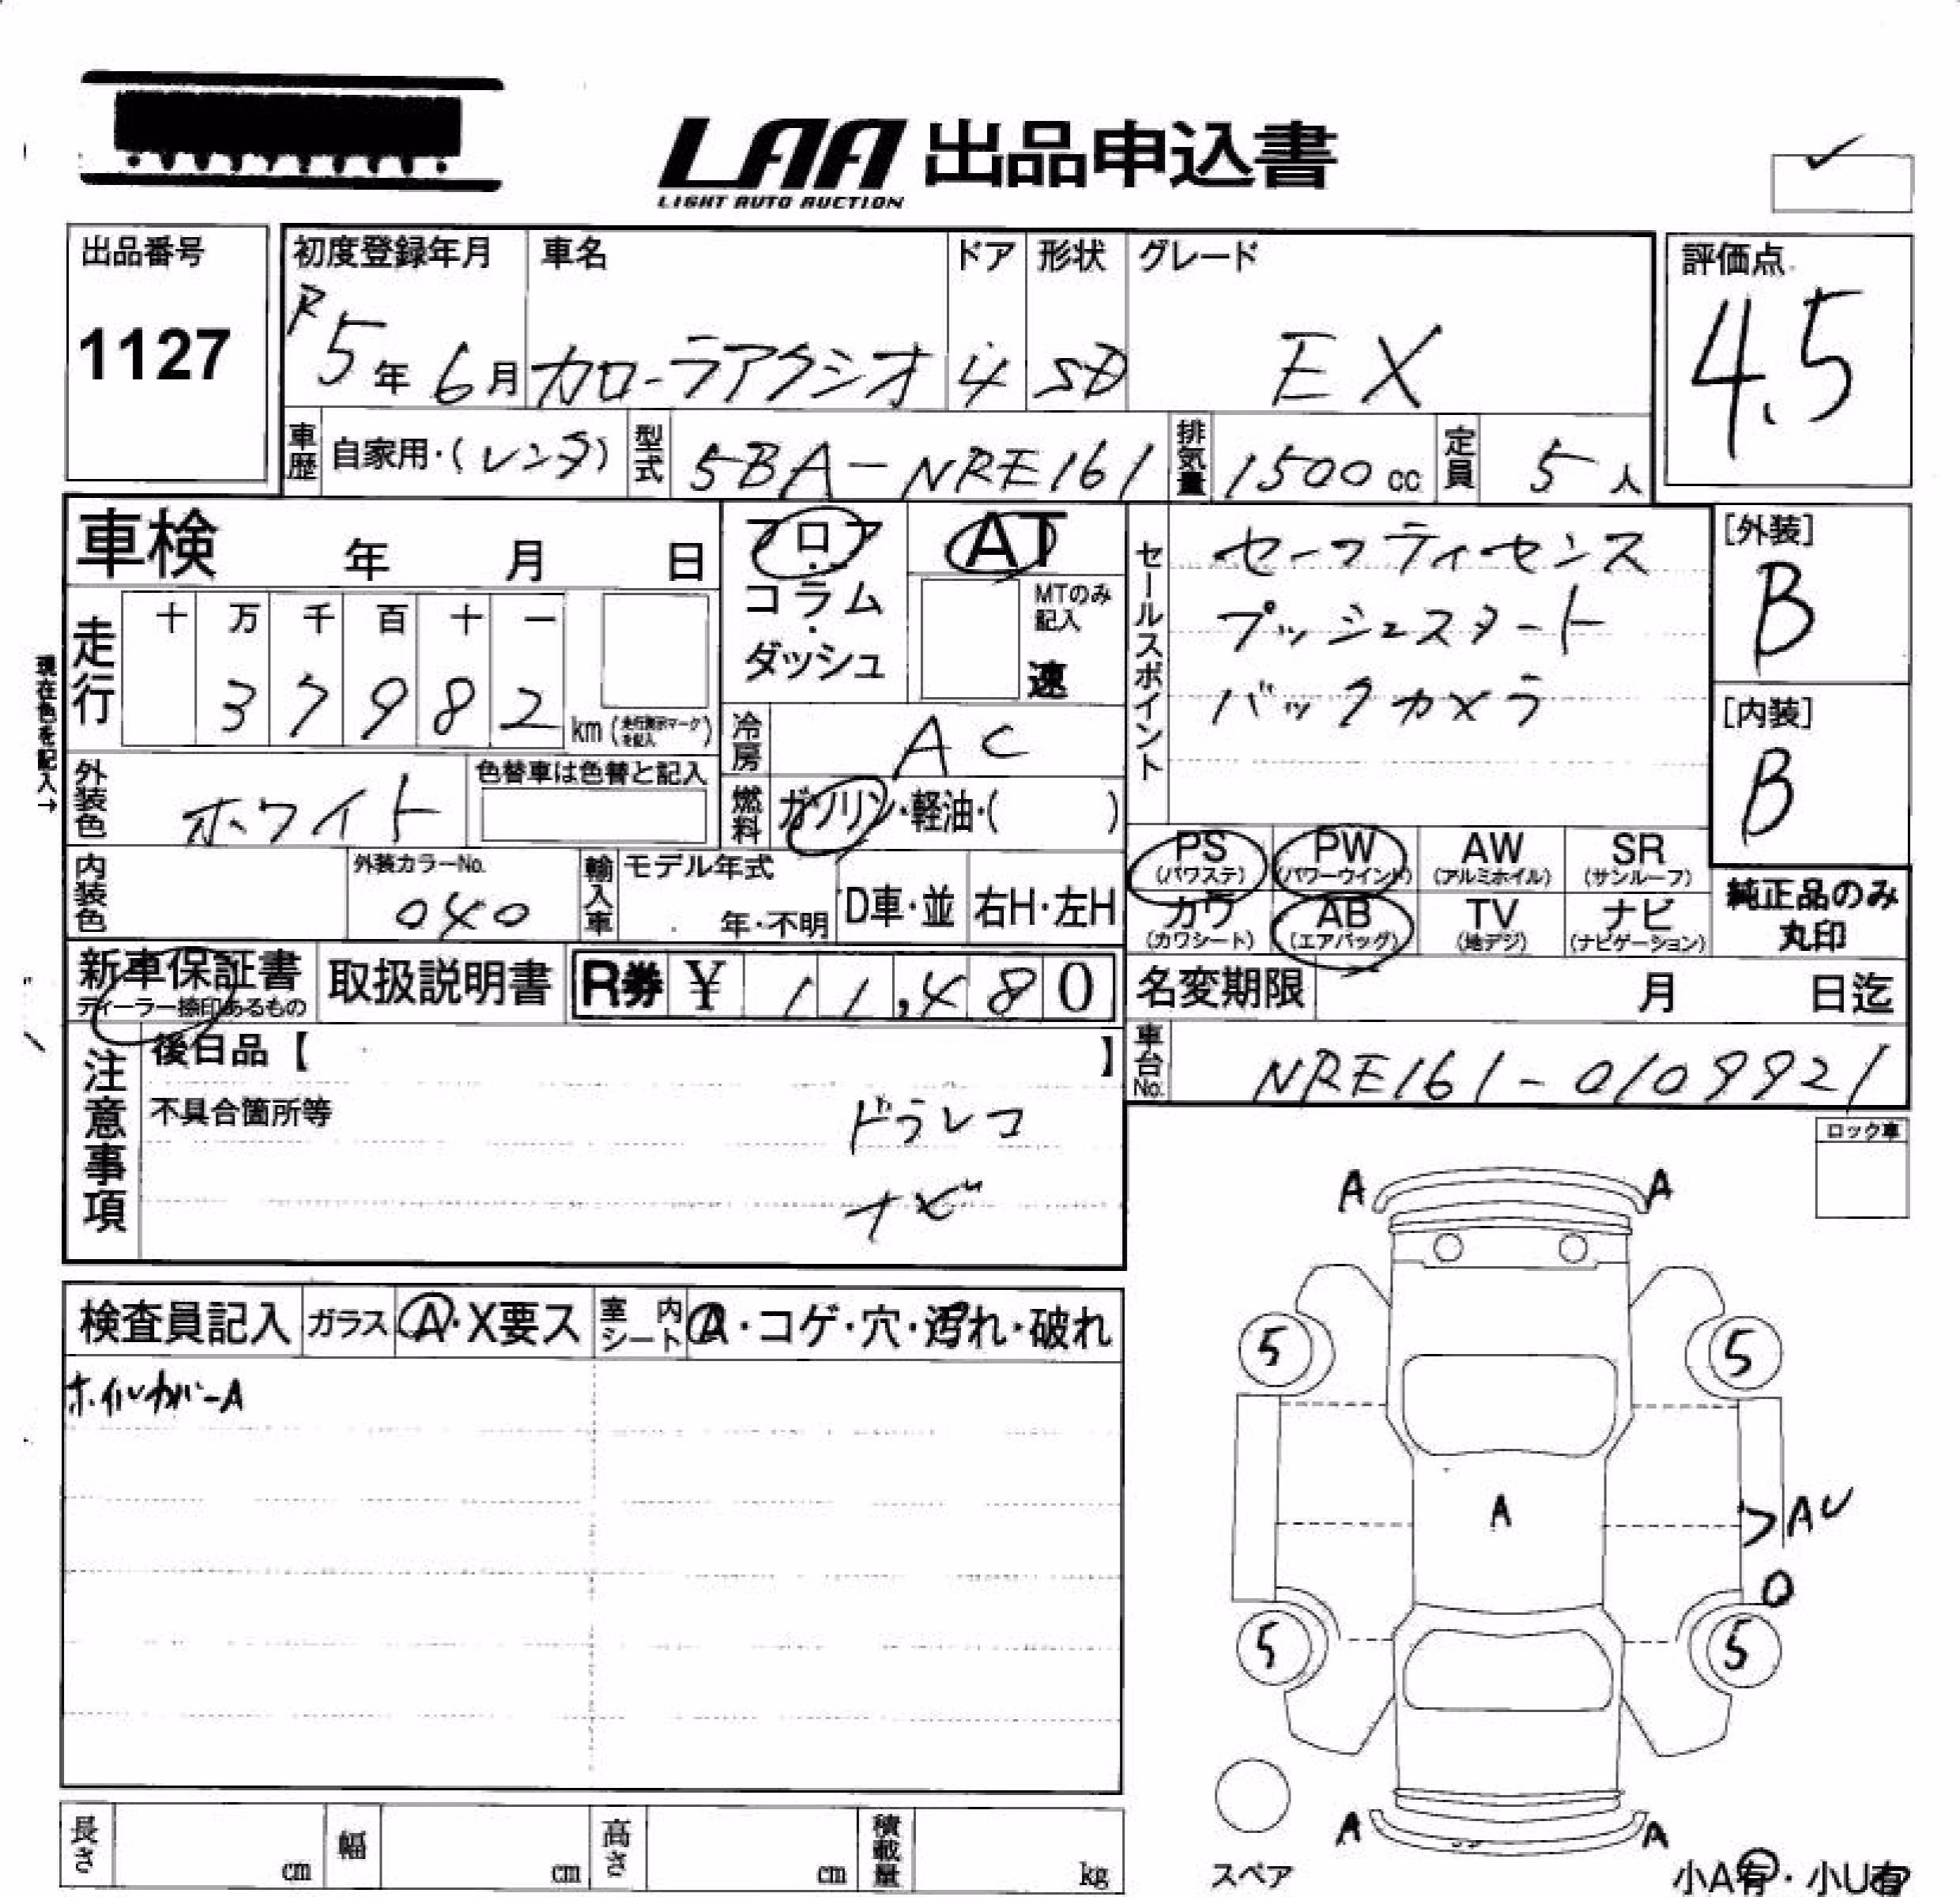 LAA 出品申込書
LIGHT AUTO AUCTION
出品番号
1127
初度登録年月
R5年6月
車名
カローラアクシオ
ドア
4
形状
SD
グレード
EX
評価点
4.5
車歴
自家用・(レンタ)
型式
5BA-NRE161
排気量
1500cc
定員
5人
車検 年 月 日
フロア・コラム・ダッシュ
AT
MTのみ記入
速
セールスポイント
セーフティセンス
プッシュスタート
バックカメラ
[外装]
B
[内装]
B
現在色を記入→
走行
十 万 千 百 十 一
3 7 9 8 2
km(走行表示マークを記入)
冷房
AC
外装色
ホワイト
色替車は色替と記入
燃料
ガソリン・軽油・( )
内装色
外装カラーNo.
040
輸入車
モデル年式
年・不明
D車・並
右H・左H
PS (パワステ)
PW (パワーウインド)
AW (アルミホイル)
SR (サンルーフ)
カワ (カワシート)
AB (エアバッグ)
TV (地デジ)
ナビ (ナビゲーション)
純正品のみ丸印
新車保証書
ディーラー捺印あるもの
取扱説明書
R券 ¥ 11,480
名変期限 月 日迄
車台No.
NRE161-0109921
注意事項
後日品【 】
不具合箇所等
ドラレコ
ナビ
ロック車
検査員記入
ガラス
A・X要ス
室内シート
A・コゲ・穴・汚れ・破れ
ホイルカバーA
A A
5 5
A
AU
O
5 5
A A
スペア
小A有・小U有
長さ cm
幅 cm
高さ cm
積載量 kg